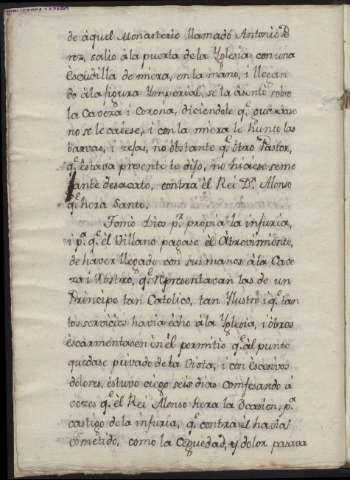 de àquel Monasterio llamadò Antonio P
rez, saliò à la puerta de la Yglesia, con una
Escudilla de miera, en la mano, i llegan
do à la figura Ymperial, se la àsentò sobre
la Caveza i Corona, diciendole qe guardase
no se le caiese, i con la miera le huntò las
barvas, i rejas, no obstante qe òtro Pastor,
qe estava presente le dijo, no hiciese seme
jante desacato, contra èl Rei Dn. Alonso
qe hera Santo.
Tomò Dios pr. propia la injuria,
i pa. qe èl Villano pagase èl Atrevimiento,
de haver llegado con sus manos à la Cave
za i Rostro, qe representavan las de un
Principe tan Catolico, tan Ylustre i qe tan
tos servicios havia echo à la Yglesia, i òtros
escarmentasen en èl permitiò qe al punto
quedase privado de la Vista, i con escesivos
dolores, estuvo cinco ò seis dias confesando à
voces qe èl Rei Alonso hera la Ocasion, pr.
castigo de la injuria, qe contra èl havia
cometido, como la Ceguedad, y dolor pasava